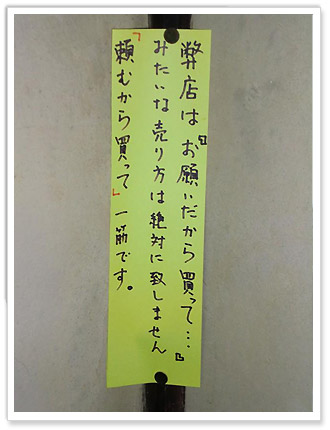 弊店は『お願いだから買って…』
みたいな売り方は絶対に致しません
「頼むから買って」一筋です。